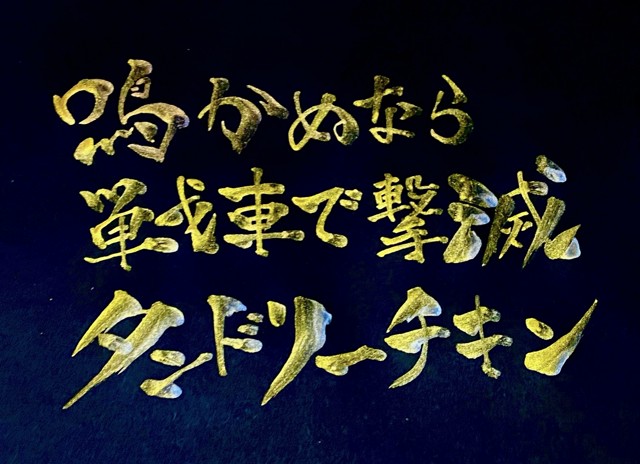 鳴かぬなら
戦車で撃滅
タンドリーチキン